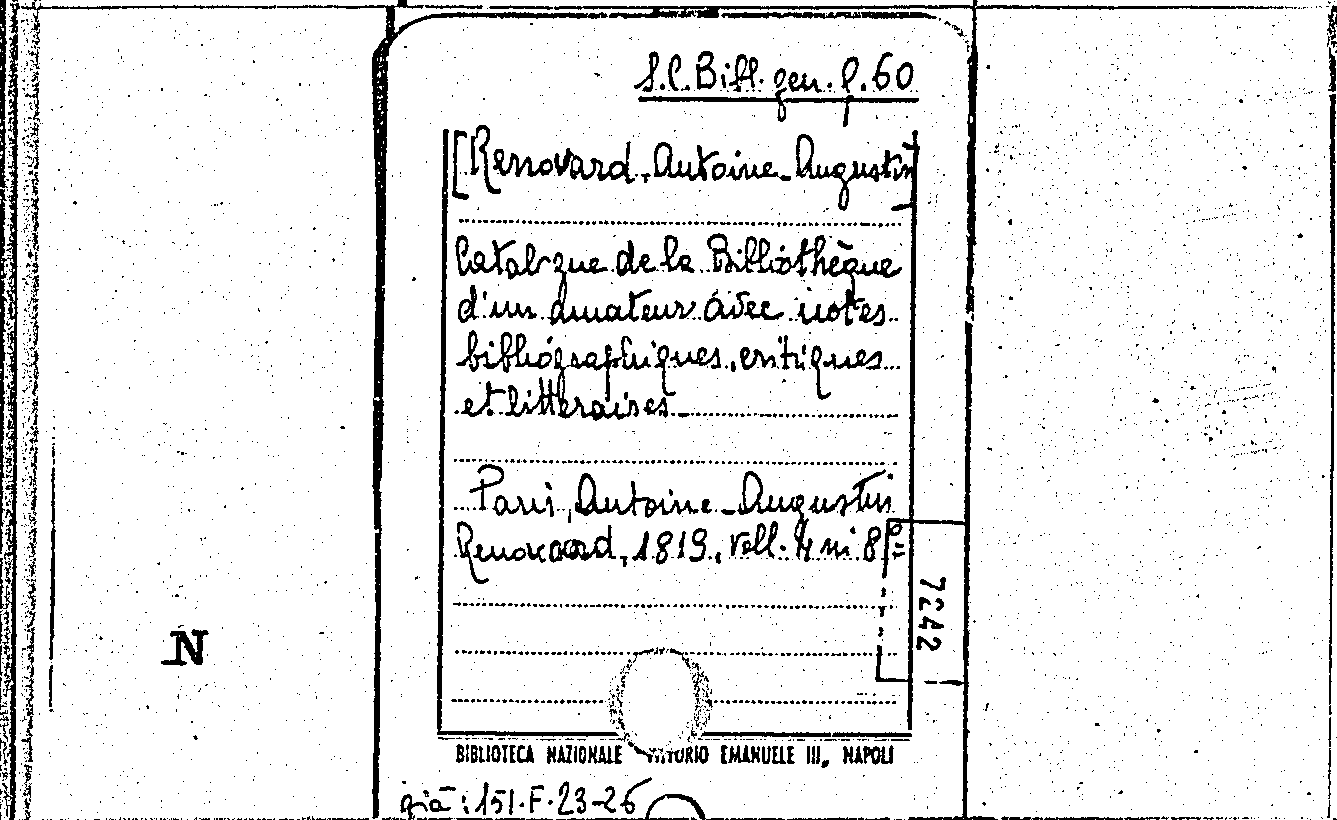 S.C. Bibl. gen. q. 60
[Renovard, Antoine-Augustin]
Catalogue de la Bibliothèque
d'un amateur avec notes
bibliographiques, critiques
et littéraires_
Paris, Antoine-Augustin
Renovard, 1819, voll. 4 in 8º
7242
N
BIBLIOTECA NAZIONALE VITTORIO EMANUELE III, NAPOLI
già: 151.F.23-26